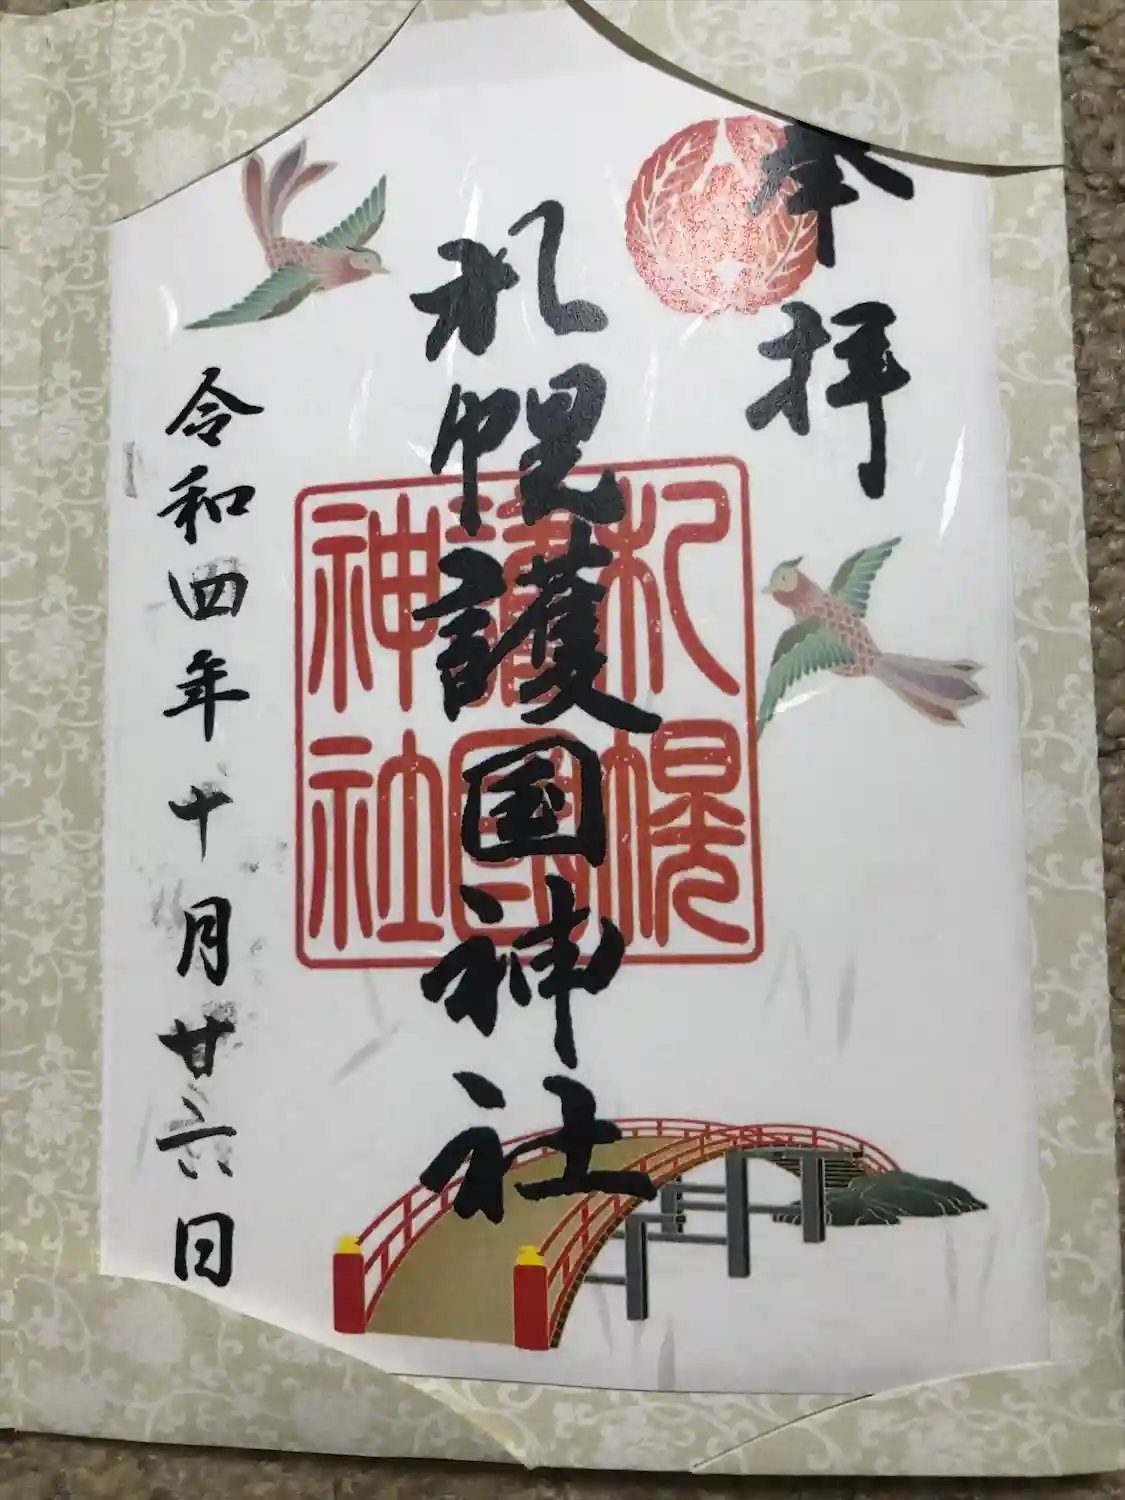 奉拝
札幌護国神社
札幌
護國
神社
令和四年十月廿六日